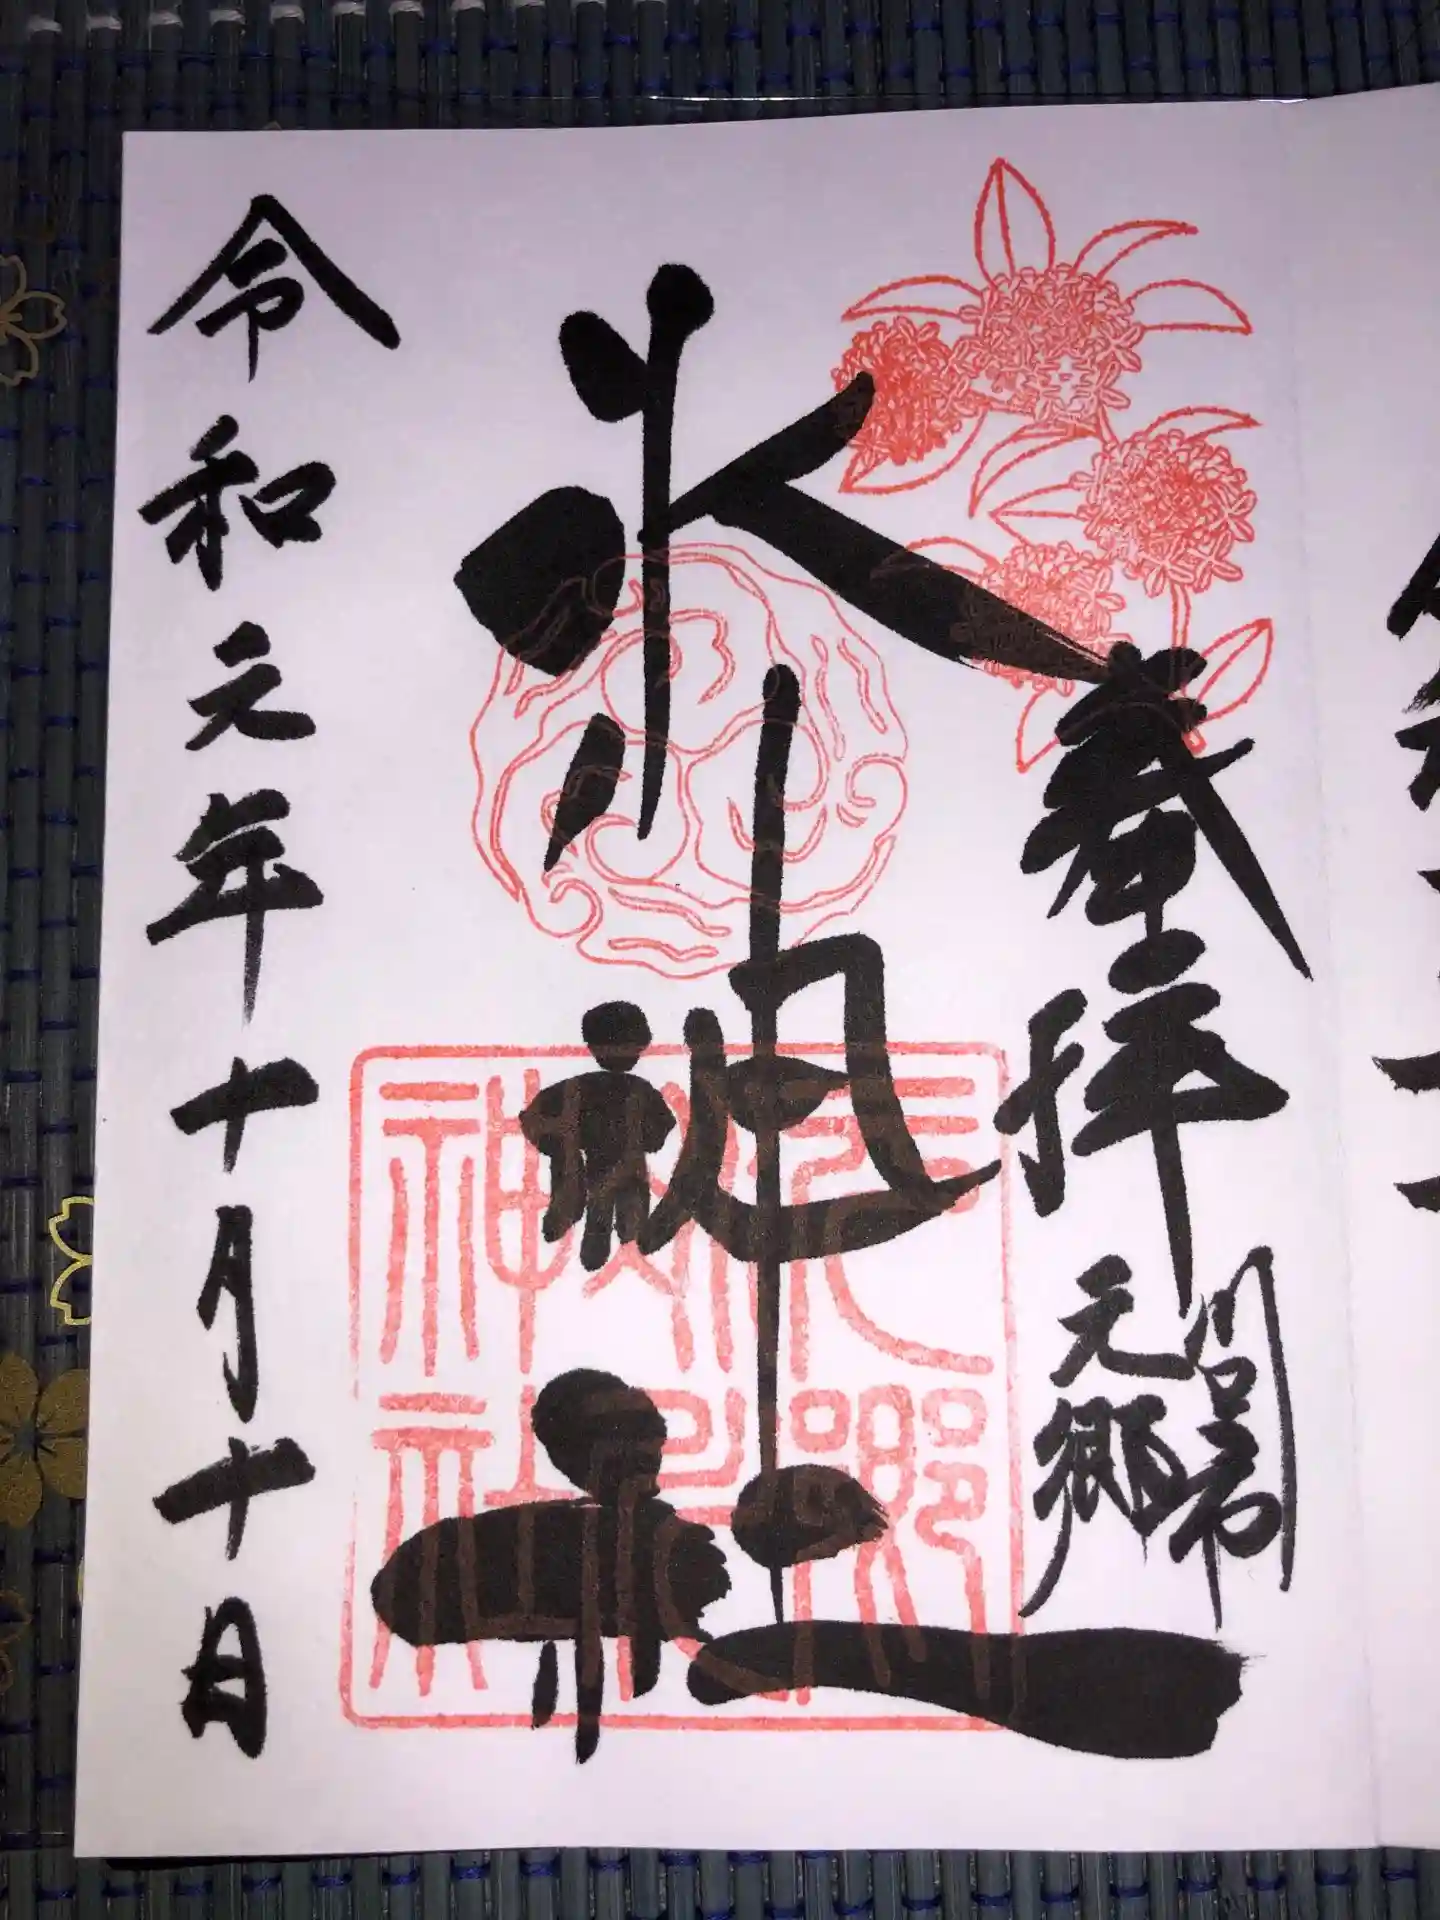 奉拝
川口市
元郷
氷川神社
元郷氷川神社
令和元年十月十日